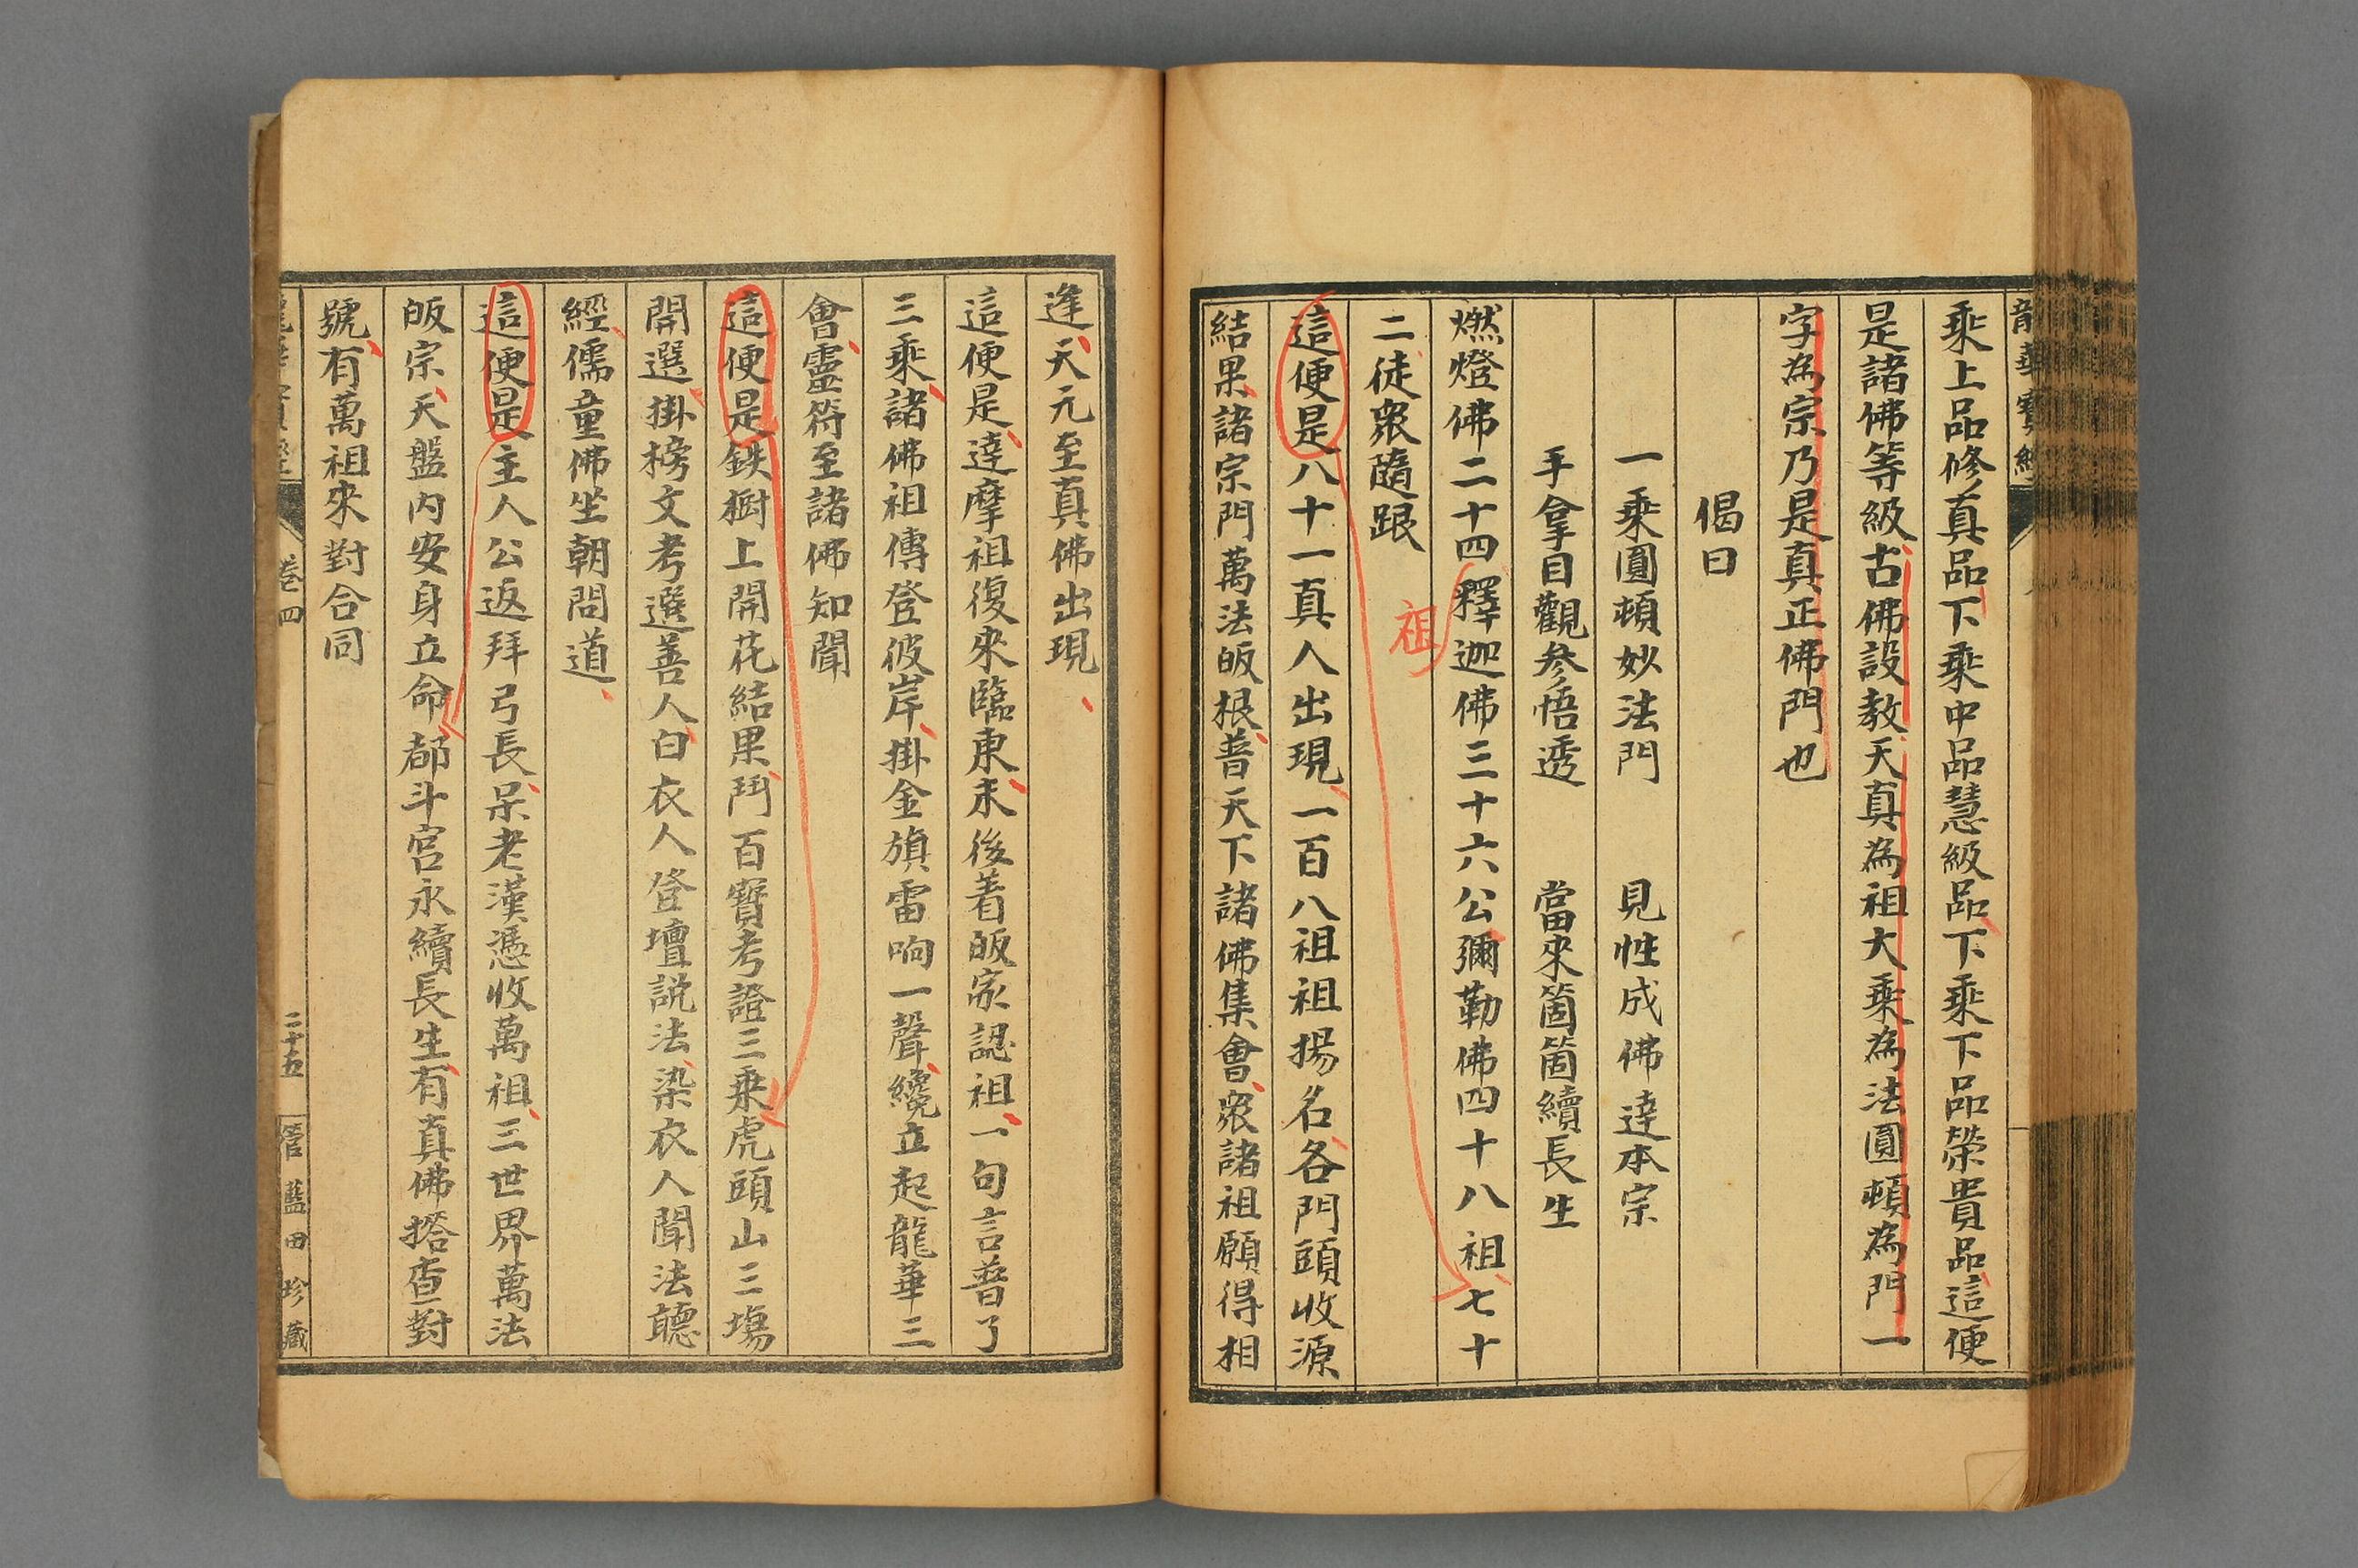 龍華寶經
乘上品修真品下乘中品慧級品下乘下品榮貴品這便
是諸佛等級古佛設教天真為祖大乘為法圓頓為門一
字為宗乃是真正佛門也
偈曰
一乘圓頓妙法門　見性成佛達本宗
手拿目觀参悟透　當來箇箇續長生
燃燈佛二十四釋迦佛三十六公彌勒佛四十八祖七十
祖
二徒眾隨跟
這便是八十一真人出現一百八祖祖揚名各門頭收源
結果諸宗門萬法皈根普天下諸佛集會眾諸祖願得相
逢天元至真佛出現
這便是達摩祖復來臨東末後着皈家認祖一句言普了
三乘諸佛祖傳登彼岸掛金旗雷响一聲纔立起龍華三
會靈符至諸佛知聞
這便是鉄樹上開花結果鬥百寶考證三乘虎頭山三塲
開選掛榜文考選善人白衣人登壇説法染衣人聞法聽
經儒童佛坐朝問道
這便是主人公返拜弓長呆老漢憑收萬祖三世界萬法
皈宗天盤內安身立命都斗宮永續長生有真佛搭查對
號有萬祖來對合同
龍華寶經
卷四
二十五
管藍田珍藏